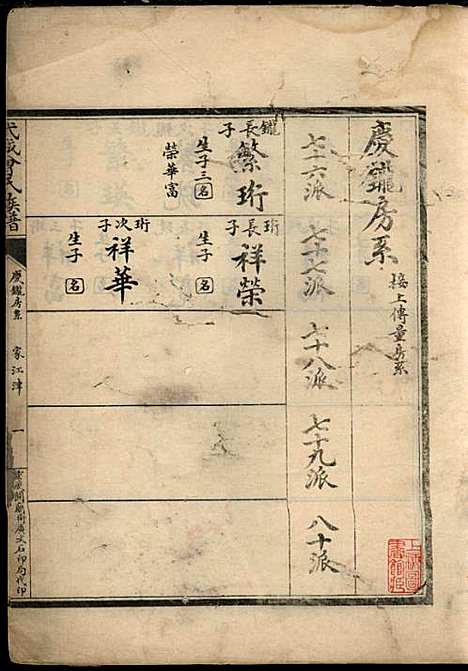 慶鑨房系
接上傳量房系
七十六派
七十七派
七十八派
七十九派
八十派
鑨長子
繁珩
生子三名
榮華富
珩長子
祥榮
生子名
珩次子
祥華
生子名
氏族譜
慶鑨房系
家江津
一
石印局代印